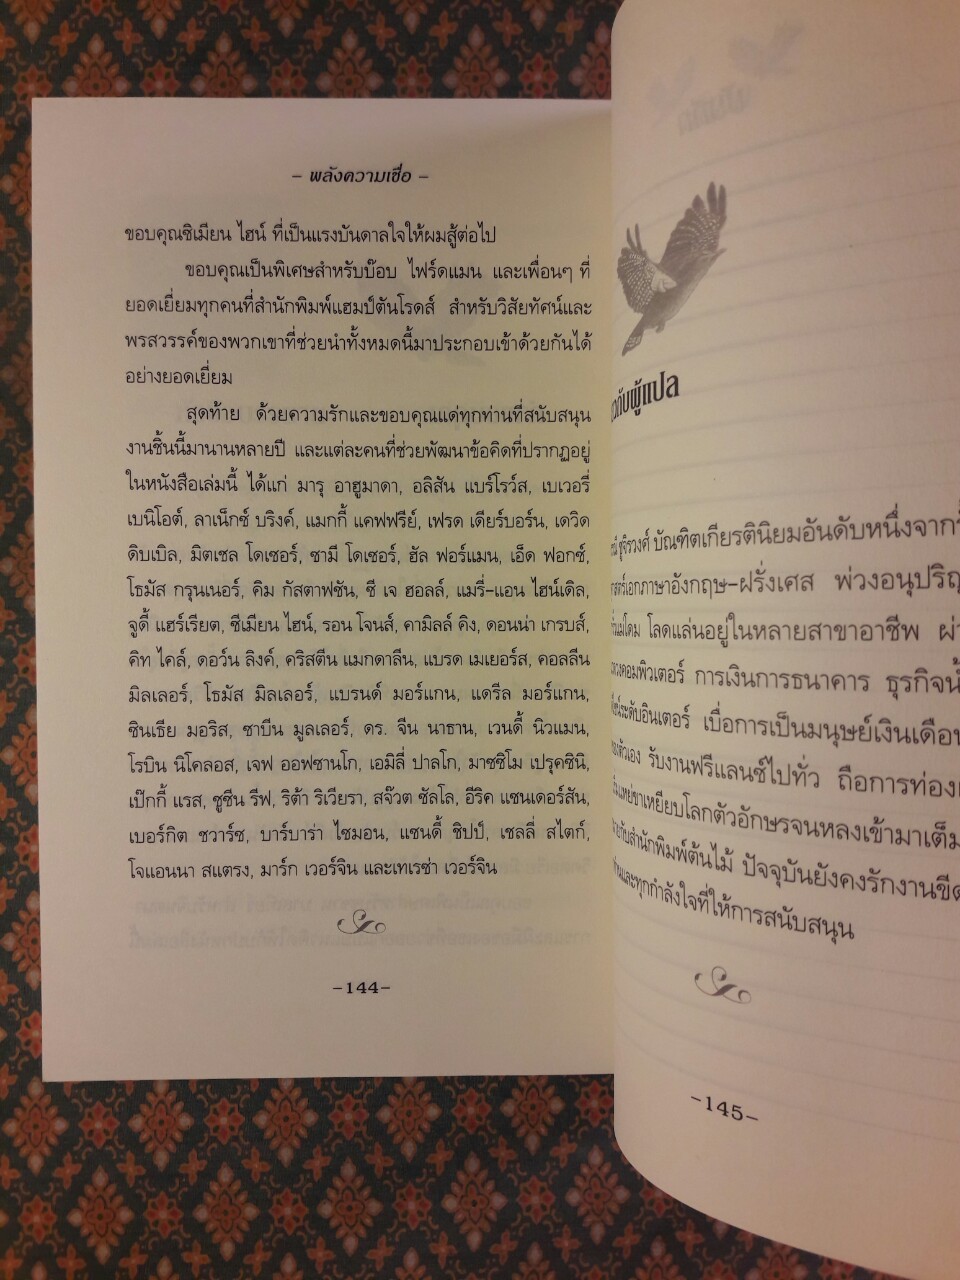 – พลังความเชื่อ –
ขอบคุณซิเมียน ไฮน์ ที่เป็นแรงบันดาลใจให้ผมสู้ต่อไป
ขอบคุณเป็นพิเศษสำหรับบ๊อบ ไฟร์ดแมน และเพื่อนๆ ที่
ยอดเยี่ยมทุกคนที่สำนักพิมพ์แฮมป์ตันโรดส์ สำหรับวิสัยทัศน์และ
พรสวรรค์ของพวกเขาที่ช่วยนำทั้งหมดนี้มาประกอบเข้าด้วยกันได้
อย่างยอดเยี่ยม
สุดท้าย ด้วยความรักและขอบคุณแด่ทุกท่านที่สนับสนุน
งานชิ้นนี้มานานหลายปี และแต่ละคนที่ช่วยพัฒนาข้อคิดที่ปรากฏอยู่
ในหนังสือเล่มนี้ ได้แก่ มารุ อาฮูมาดา, อลิสัน แบร์โรว์ส, เบเวอรี่
เบนิโอต์, ลาเน็กซ์ บริงค์, แมกกี้ แคฟฟรีย์, เฟรด เดียร์บอร์น, เดวิด
ดิบเบิล, มิตเชล โดเซอร์, ซามี โดเซอร์, ฮัล ฟอร์แมน, เอ็ด ฟอกซ์,
โธมัส กรุนเนอร์, คิม กัสตาฟซัน, ซี เจ ฮอลล์, แมรี่-แอน ไฮน์เดิล,
จูดี้ แฮร์เรียต, ซีเมียน ไฮน์, รอน โจนส์, คามิลล์ คิง, ดอนน่า เกรบส์,
คิท ไคล์, ดอว์น ลิงค์, คริสตีน แมกดาลีน, แบรด เมเยอร์ส, คอลลีน
มิลเลอร์, โธมัส มิลเลอร์, แบรนด์ มอร์แกน, แดรีล มอร์แกน,
ซินเธีย มอริส, ซาบีน มูลเลอร์, ดร. จีน นาธาน, เวนดี้ นิวแมน,
โรบิน นิโคลอส, เจฟ ออฟซานโก, เอมิลี่ ปาลโก, มาซซิโม เปรุคซินิ,
เป๊กกี้ แรส, ซูซีน รีฟ, ริต้า ริเวียรา, สจ๊วต ซัลโล, อีริค แซนเดอร์สัน,
เบอร์กิต ชวาร์ซ, บาร์บาร่า ไซมอน, แซนดี้ ชิปป์, เชลลี่ สไตก์,
โจแอนนา สแตรง, มาร์ก เวอร์จิน และเทเรซ่า เวอร์จิน
–144–
ผู้แปล
ชูจิรวงศ์ บัณฑิตเกียรตินิยมอันดับหนึ่งจาก
เอกภาษาอังกฤษ-ฝรั่งเศส พ่วงอนุปริญ
โลดแล่นอยู่ในหลายสาขาอาชีพ
คอมพิวเตอร์ การเงินการธนาคาร
ระดับอินเตอร์ เบื่อการเป็นมนุษย์เงินเดือน
ตัวเอง รับงานฟรีแลนซ์ไปทั่ว ถือการท่อง
ขาเหยียบโลกตัวอักษรจนหลงเข้ามาเต็ม
กับสำนักพิมพ์ต้นไม้ ปัจจุบันยังคงรักงานขีด
และทุกกำลังใจที่ให้การสนับสนุน
–145–